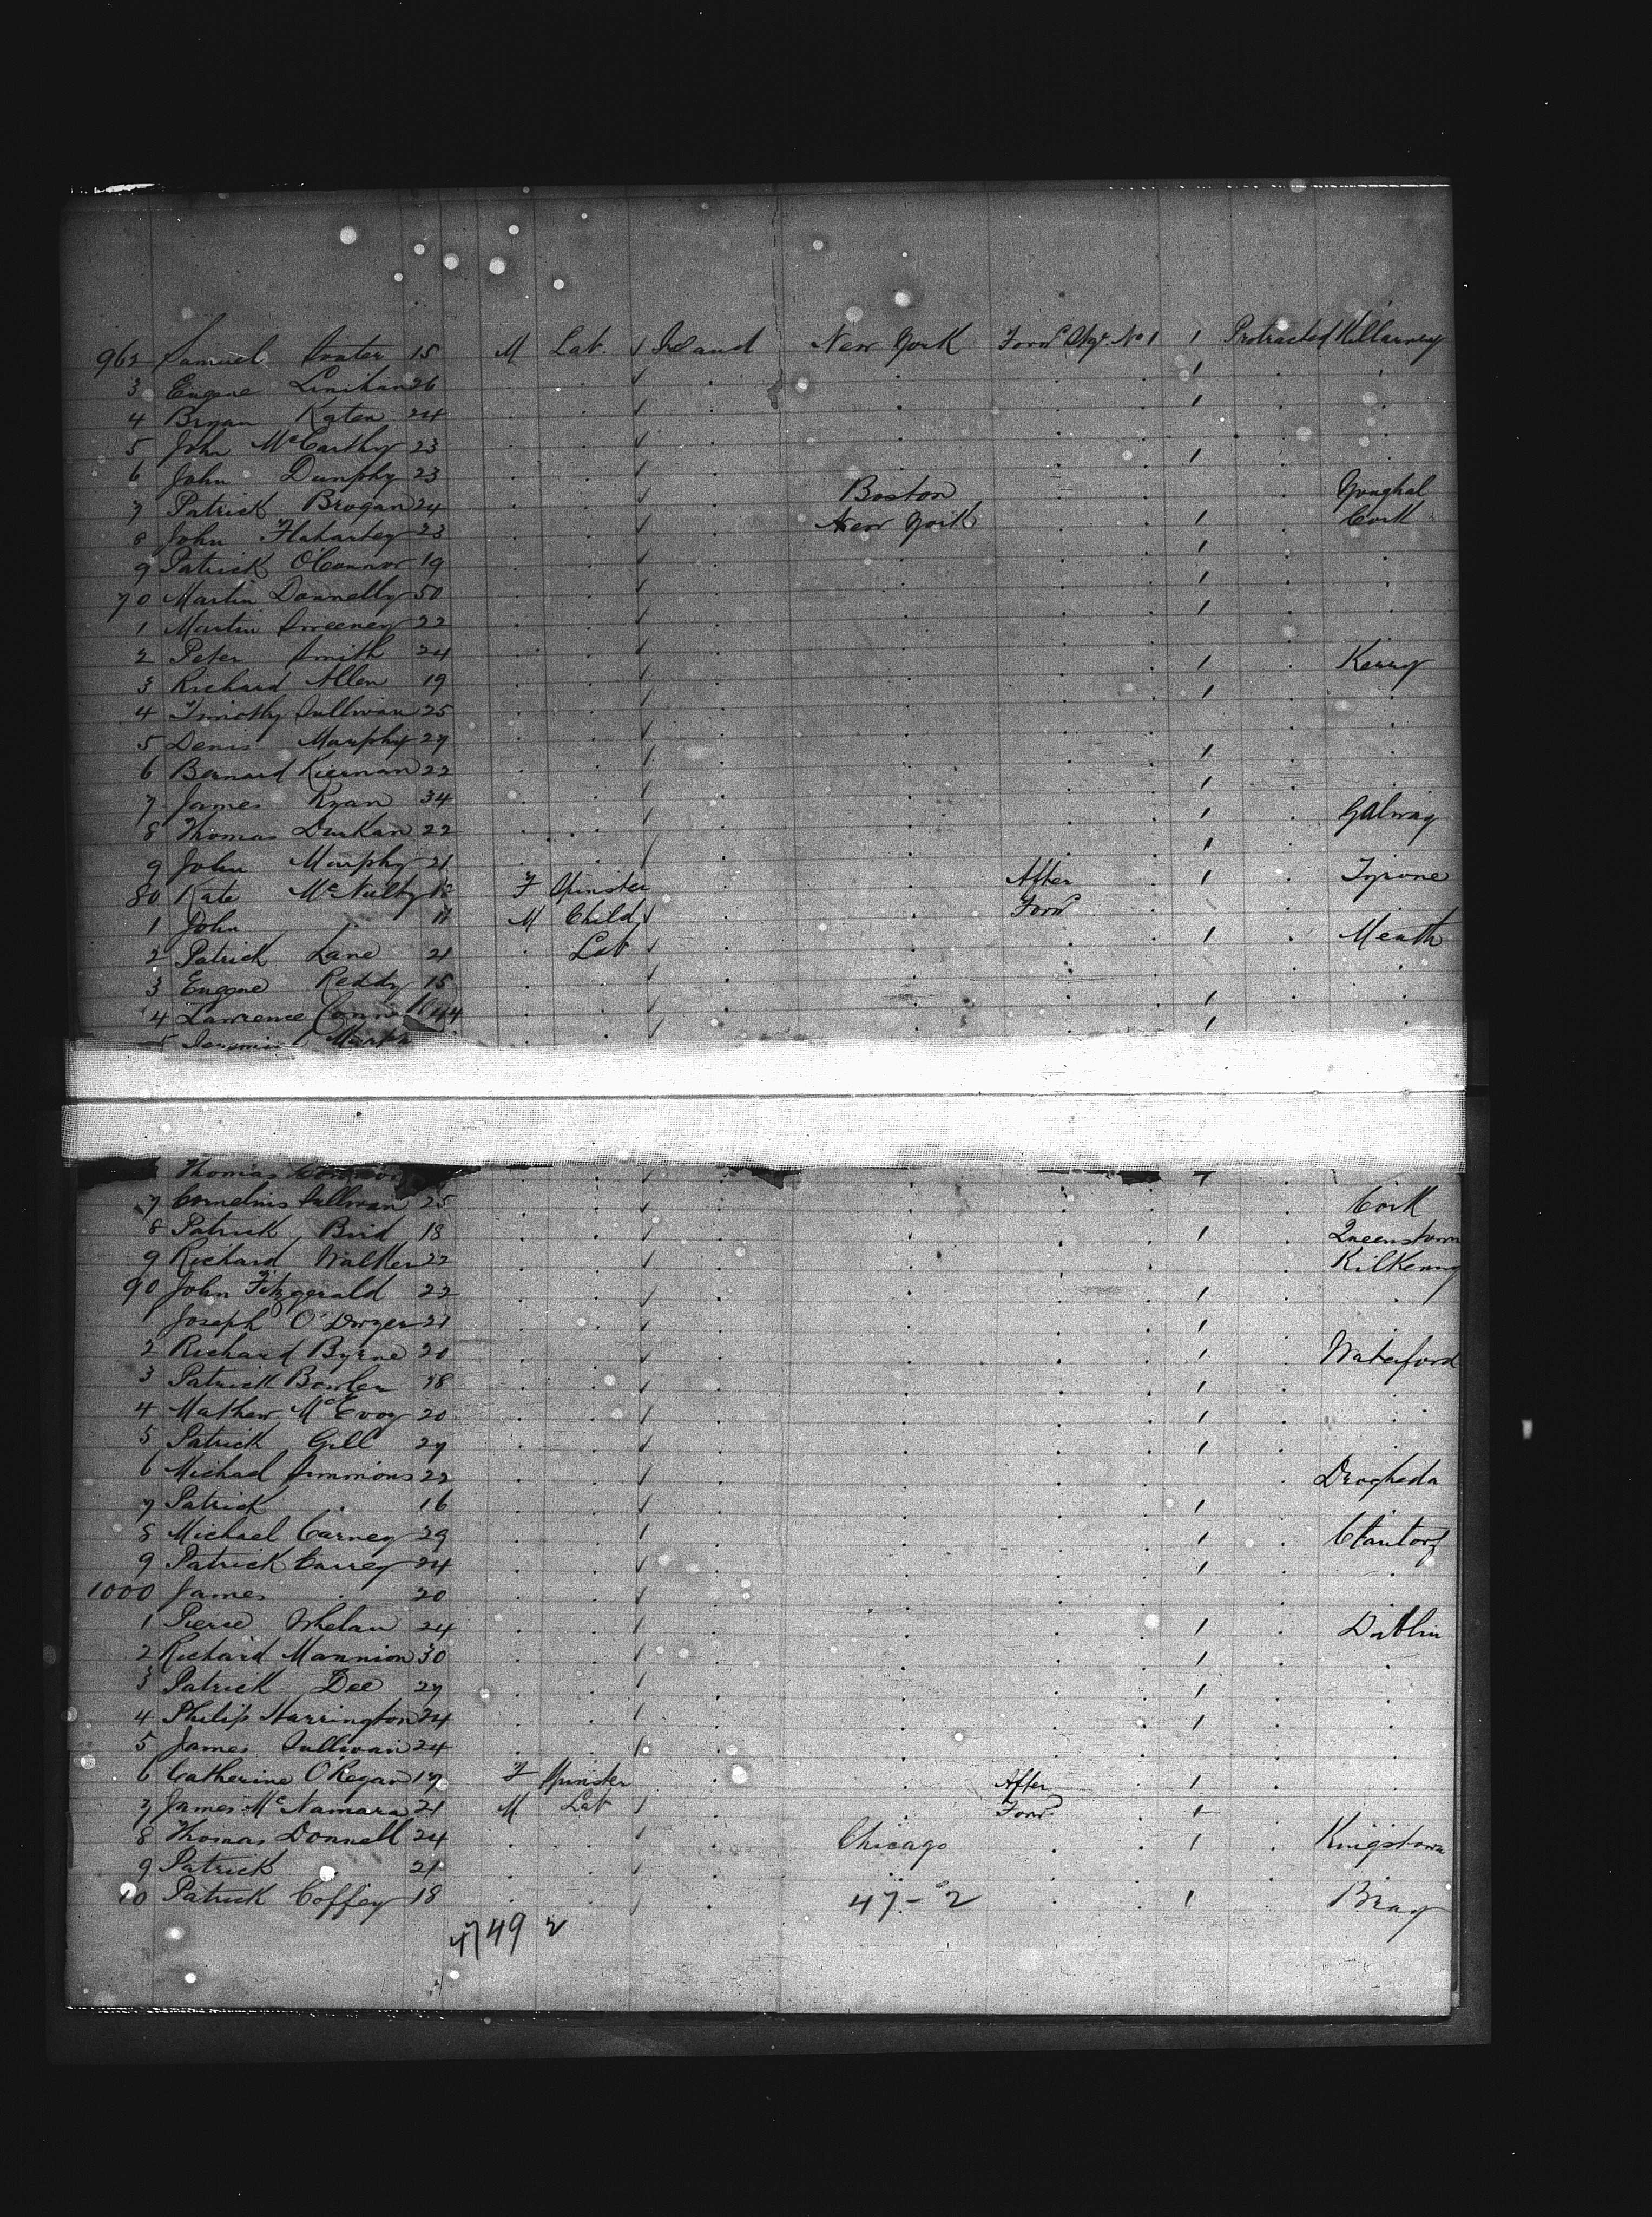 962 Samuel 15 M Lab. Ireland New York Forwd Upr. No 1 1 Protracted Killarney
3 Eugene Linihan 26 1
4 Bryan Katen 24 1
5 John McCarthy 23
6 John Dunphy 23 1
7 Patrick Brogan 24 Boston Youghal
8 John Flaharty 23 New York 1 Cork
9 Patrick O'Connor 19 1
70 Martin Donnelly 50 1
1 Martin Sweeney 22 1
2 Peter Smith 24
3 Richard Allen 19 1 Kerry
4 Timothy Sullivan 25 1
5 Denis Murphy 27
6 Bernard Kiernan 22 1
7 James Ryan 34 1
8 Thomas Durkan 22 1 Galway
9 John Murphy 21 1
80 Kate McNulty F Spinster After 1 Tyrone
1 John 11 M Child Forwd
2 Patrick Lane 21 Lab 1 Meath
3 Eugene Reddy 15
4 Lawrence 44 1
5 Murph 1
Thomas
7 Cornelius Sullivan 25 Cork
8 Patrick Bird 18 1 Queenstown
9 Richard Walker 22 Kilkenny
90 John Fitzgerald 22 1
1 Joseph O'Dwyer 27 1
2 Richard Byrne 20 1 Waterford
3 Patrick Bowler 18 1
4 Mathew McEvoy 20 1
5 Patrick Gill 27 1
6 Michael Simmons 22 Drogheda
7 Patrick . 16 1
8 Michael Carney 29 1 Clantorf
9 Patrick Carrey 24 1
1000 James . 20
1 Pierce Whelan 24 1 Dublin
2 Richard Mannion 30 1
3 Patrick Dee 27 1
4 Philip Harrington 24 1
5 James Sullivan 24
6 Catherine O'Regan 17 F Spinster After 1
7 James McNamara 21 M Lab Forwd 1
8 Thomas Donnell 24 Chicago 1 Kingstown
9 Patrick . 21
10 Patrick Coffey 18 47-2 1 Bray
47 49 2